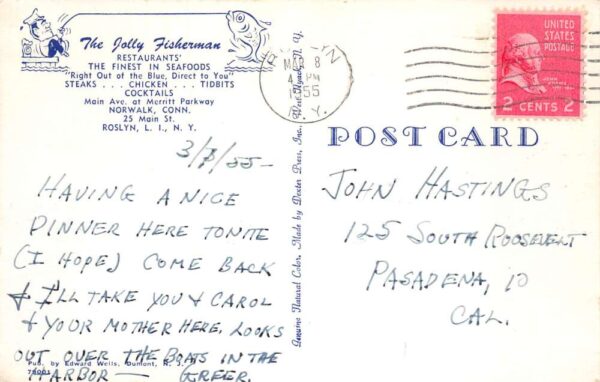 The Jolly Fisherman
RESTAURANTS'
THE FINEST IN SEAFOODS
"Right Out of the Blue, Direct to You"
STEAKS . . . CHICKEN . . . TIDBITS
COCKTAILS
Main Ave. at Merritt Parkway
NORWALK, CONN.
25 Main St.
ROSLYN, L. I., N. Y.
3/8/55-
HAVING A NICE
DINNER HERE TONITE
(I HOPE) COME BACK
& I'LL TAKE YOU & CAROL
& YOUR MOTHER HERE, LOOKS
OUT OVER THE BOATS IN THE
HARBOR — GREER.
Pub. by Edward Wells, Dumont, N. J.
Genuine Natural Color, Made by Dexter Press, Inc., West Nyack, N. Y.
MAR 8
PM
1955
N. Y.
UNITED
STATES
POSTAGE
2 CENTS 2
POST CARD
JOHN HASTINGS
125 SOUTH ROOSEVELT
PASADENA, 10
CAL.